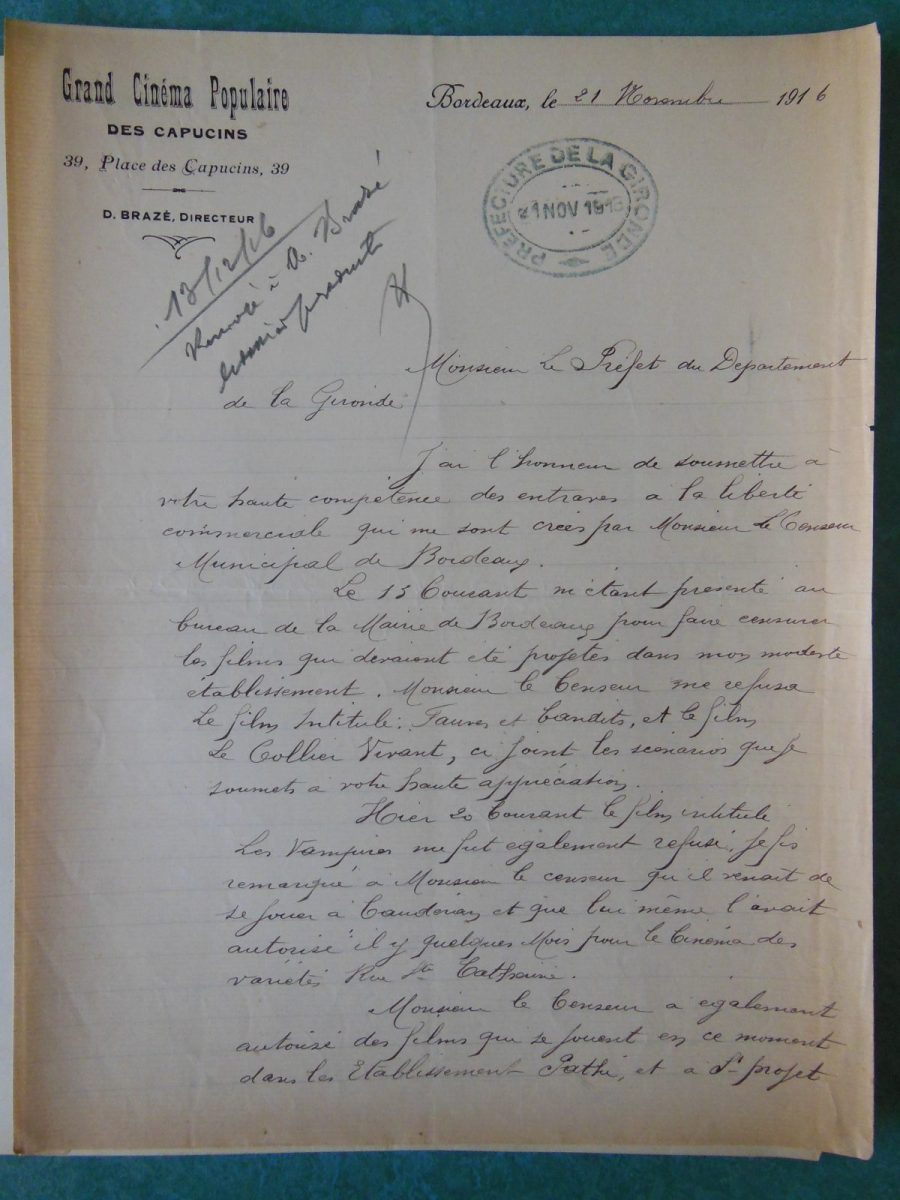 Grand Cinéma Populaire
DES CAPUCINS
39, Place des Capucins, 39
D. BRAZÉ, DIRECTEUR
Bordeaux, le 21 Novembre 1916
PREFECTURE DE LA GIRONDE
21 NOV 1916
13/12/16
Renvoyé à D. Brazé
Monsieur Le Préfet du Departement
de la Gironde
J'ai l'honneur de soumettre à
votre haute compétence des entraves a la liberté
commerciale qui me sont créés par Monsieur Le Censeur
Municipal de Bordeaux.
Le 13 Courant m'étant presenté au
bureau de la Mairie de Bordeaux pour faire censurer
les films qui devraient été projetés dans mon modeste
établissement. Monsieur le Censeur me refusa
Le film intitulé: Fauves et bandits, et le film
Le Collier Vivant, ci joint les scénarios que je
soumets a votre haute appréciation.
Hier 20 Courant le film intitulé
Les Vampires me fut egalement refusé, je fis
remarqué a Monsieur le censeur qu'il venait de
se jouer à Cauderan et que lui même l'avait
autorisé il y quelques Mois pour le Cinéma des
variétés Rue Ste Catherine.
Monsieur le Censeur a egalement
autorisé des films qui se jouent en ce moment
dans les Etablissement Pathé, et a St projet